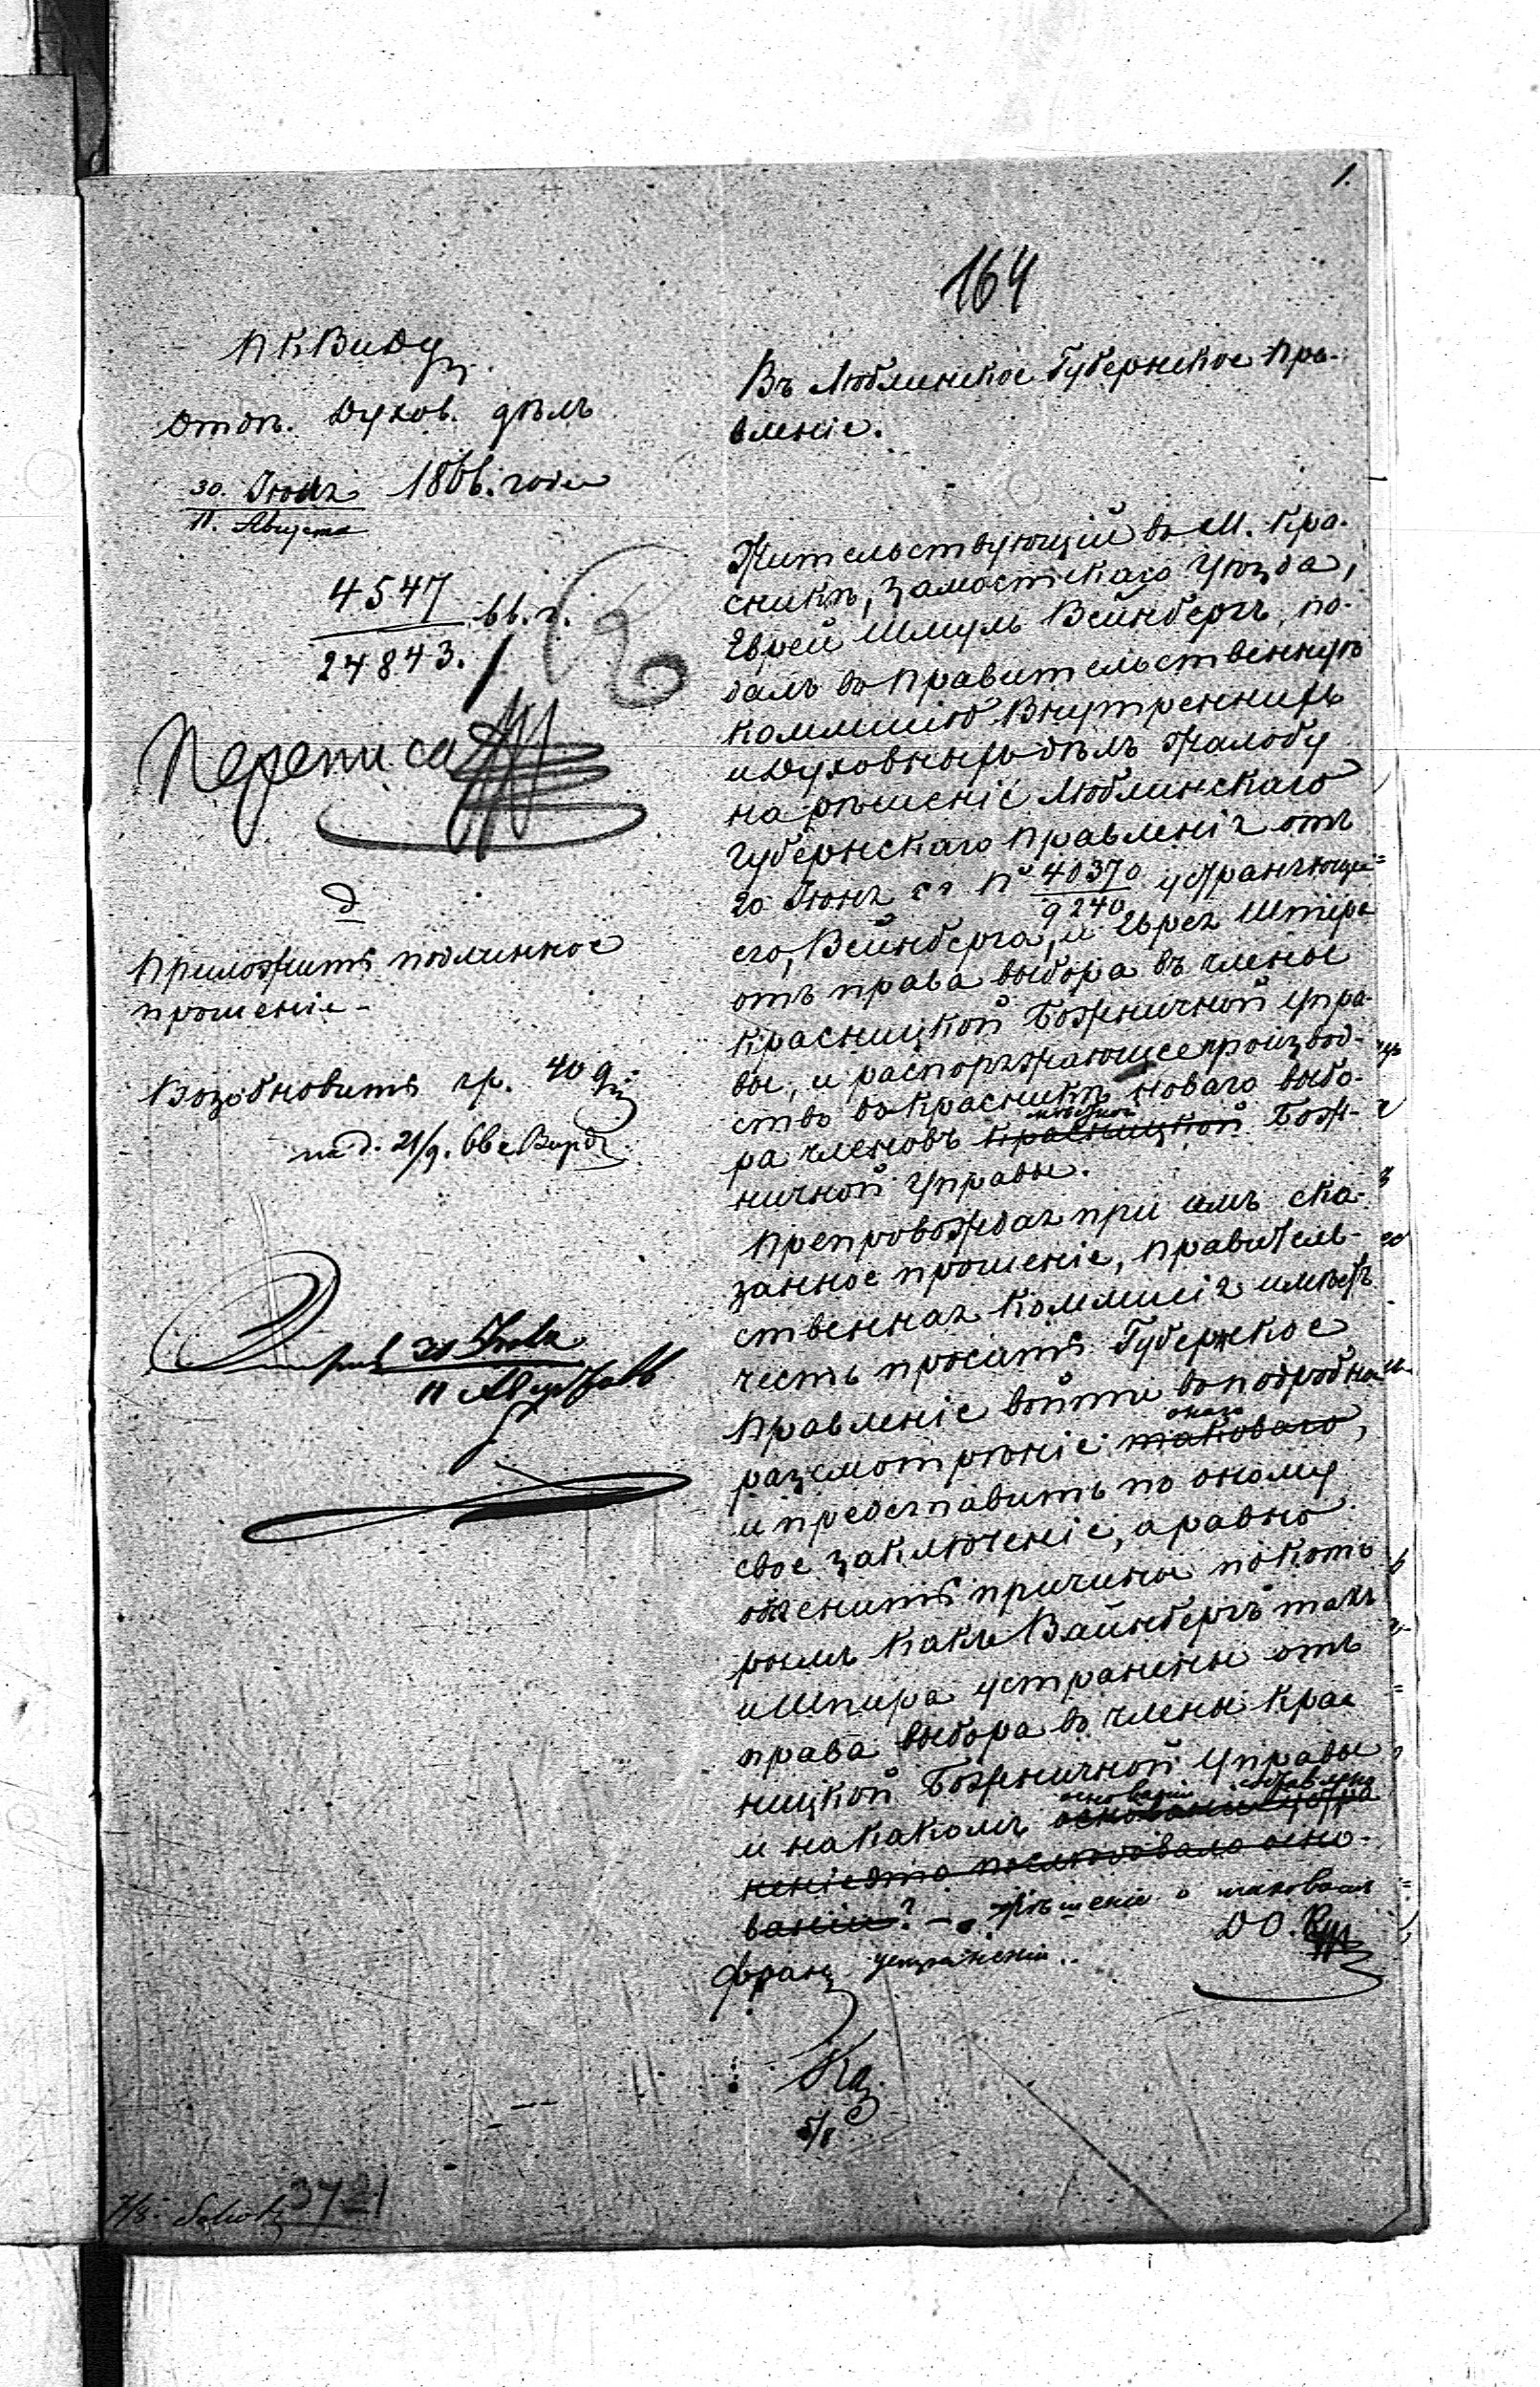 1.
164
ПКВиДД
Отдѣл. Духов. дѣлъ
30. Іюля 1866. года
11. Августа
4547
66. г.
24843.
Приложить подлинное
прошеніе.
Возобновить чр. 40 д.
Въ Люблинское Губернское Пра-
вленіе.
Жительствующій въ М. Кра-
сникѣ, Замостскаго Уѣзда,
Еврей Шмуль Вейнбергъ, по-
далъ въ Правительственную
Коммисію Внутреннихъ
и Духовныхъ дѣлъ жалобу
на рѣшеніе Люблинскаго
Губернскаго Правленія отъ
20 Іюня с. г. № 40370/9240 устраняющее
его, Вейнберга, и Еврея Шпира
отъ права выбора въ члены
Красницкой Божничной Упра-
вы, и распоряжающее производ-
ство въ Красникѣ новаго выбо-
ра членовъ Красницкой Бож-
ничной Управы.
Препровождая при семъ ска-
занное прошеніе, Правитель-
ственная Коммисія имѣетъ
честь просить Губернское
Правленіе войти въ подробное
разсмотрѣніе таковаго онаго,
и представить по оному
свое заключеніе, а равно
объяснить причины по кото-
рымъ какъ Вайнбергъ такъ
и Шпира устранены отъ
права выбора въ члены Крас-
ницкой Божничной Управы
и на какомъ основаніи
неніе это послѣдовало осно-
ваніи? – рѣшеніе о таковомъ
устраненіи.
Д О.
5/8
30 Іюля
11 Августа
3721